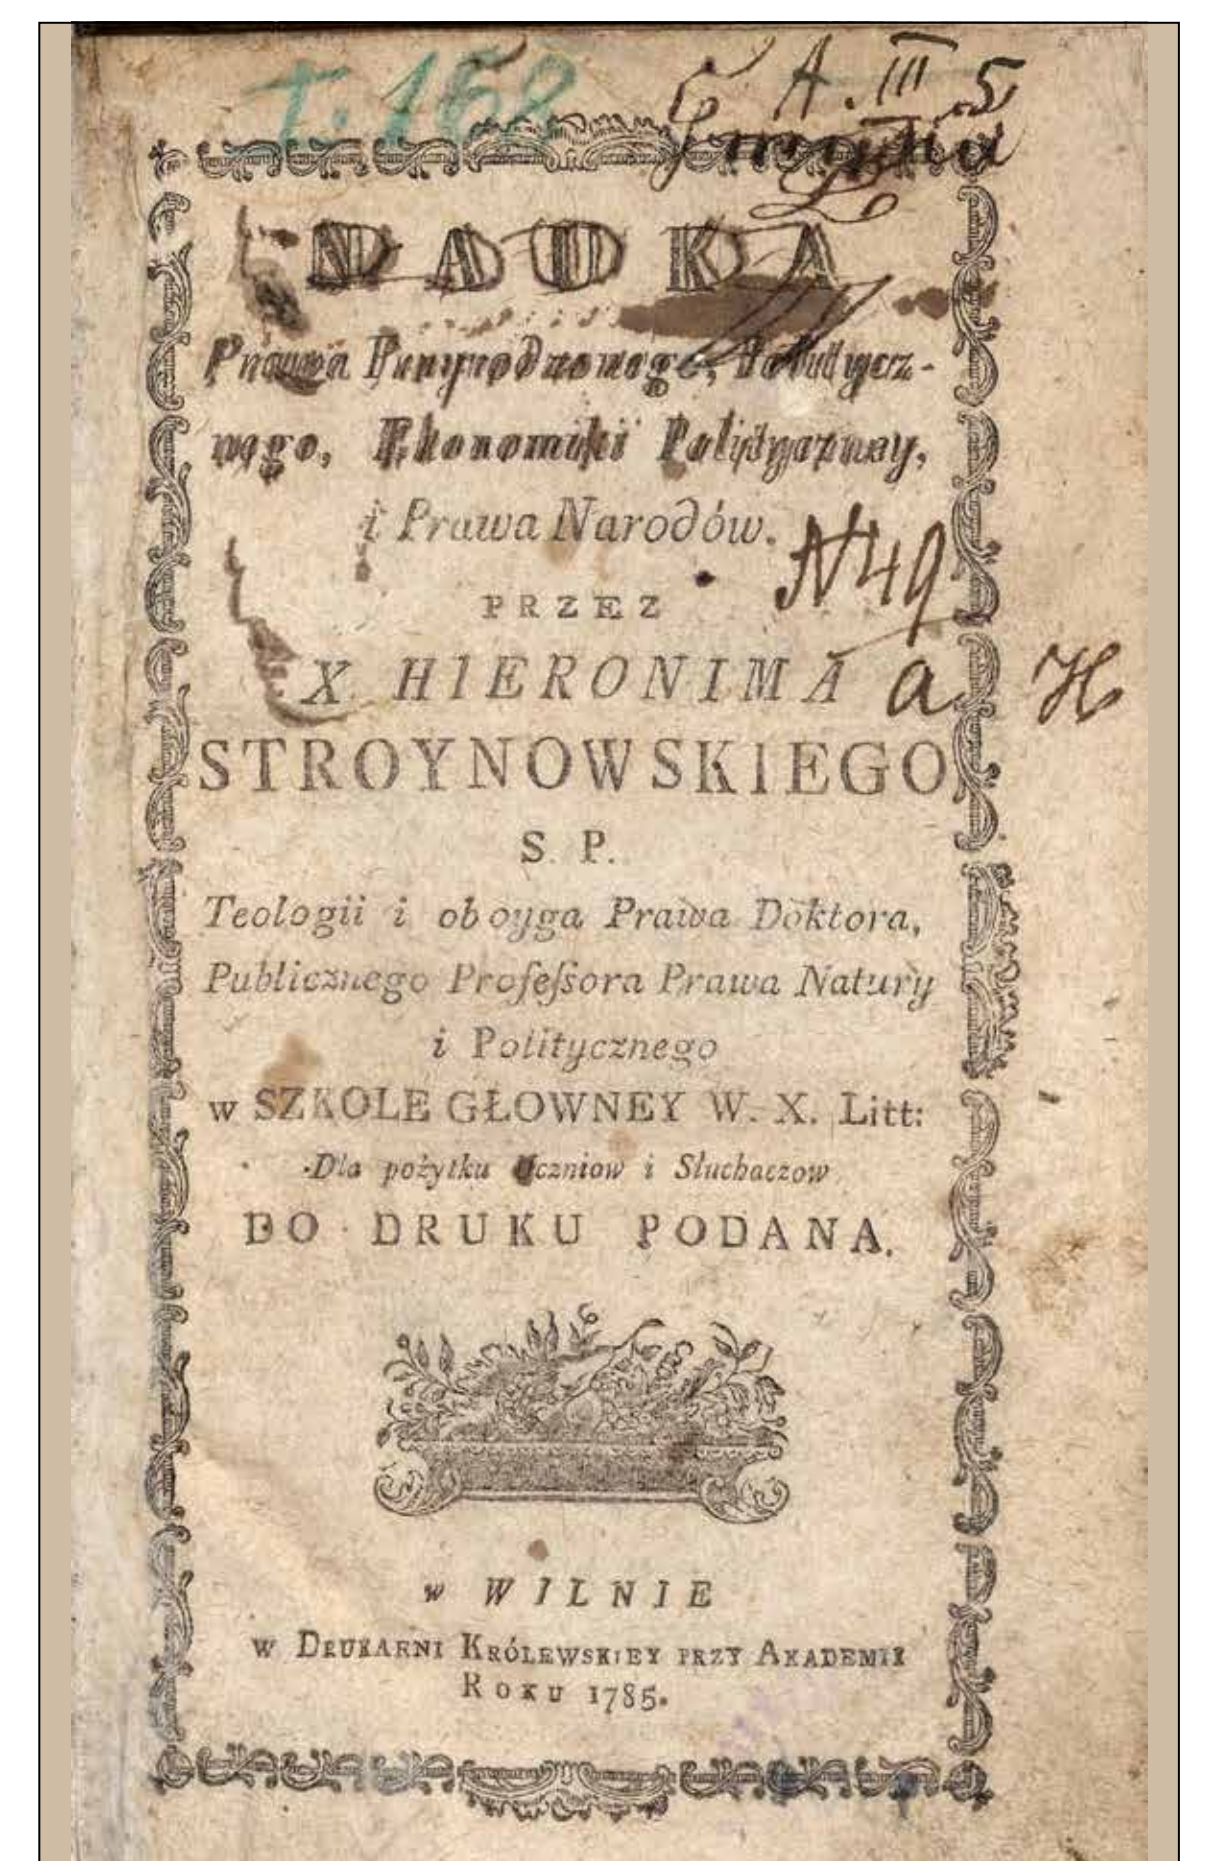 T. 168
A. III 5
NAUKA
Prawa Przyrodzonego, Politycz-
nego, Ekonomiki Polityczney,
i Prawa Narodów.
N 49
PRZEZ
X. HIERONIMA
a H
STROYNOWSKIEGO
S. P.
Teologii i oboyga Prawa Doktora,
Publicznego Profeſsora Prawa Natury
i Politycznego
w SZKOLE GŁOWNEY W. X. Litt:
Dla pożytku Uczniow i Słuchaczow
DO DRUKU PODANA.
w WILNIE
w DRUKARNI KRÓLEWSKIEY PRZY AKADEMII
ROKU 1785.